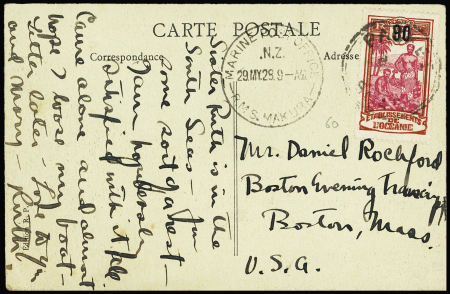 CARTE POSTALE
Correspondance
Adresse
MARINE POST OFFICE
N.Z.
29 MY 29.9-AM
R.M.S. MAKURA
90
ETABLISSEMENTS
DE
L'OCÉANIE
60
Sister Ruth is in the
South Seas — for
some sort of a rest —
I am hopelessly
satisfied with it all.
Came alone and almost
hope I loose my boat —
Letter later — Love to you
and Missy — Ruth
Mr. Daniel Rochford
Boston Evening Transcript
Boston, Mass.
U.S.A.